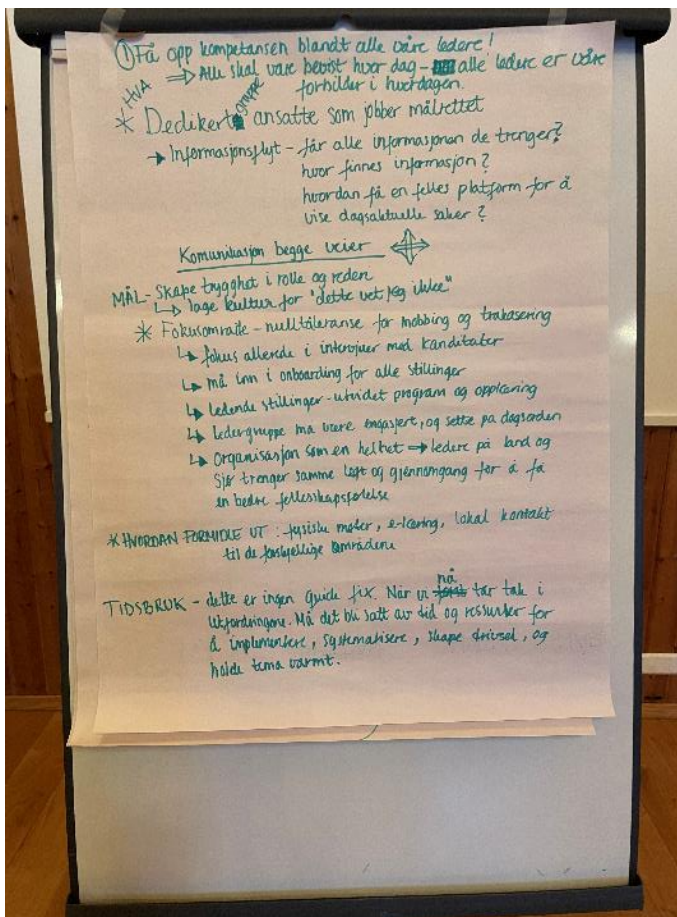 ① Få opp kompetansen blandt alle våre ledere!
HVA ⇒ Alle skal være bevist hver dag - alle ledere er våre
forbilder i hverdagen.
* Dedikert gruppe ansatte som jobber målrettet
→ Informasjonsflyt - får alle informasjonen de trenger?
hvor finnes informasjon?
hvordan få en felles platform for å
vise dagsaktuelle saker?
Komunikasjon begge veier
MÅL - Skape trygghet i rolle og reden
↳ lage kultur for "dette vet jeg ikke"
* Fokusområde - nulltoleranse for mobbing og trakasering
↳ fokus allerede i intervjuer med kanditater
↳ må inn i onboarding for alle stillinger
↳ ledende stillinger - utvidet program og opplæring
↳ ledergruppe må være engasjert, og sette på dagsorden
↳ Organisasjon som en helhet ⇒ ledere på land og
sjø trenger samme løft og gjennomgang for å få
en bedre fellesskapsfølelse
* HVORDAN FORMIDLE UT : fysiske møter, e-læring, lokal kontakt
til de forskjellige områdene
TIDSBRUK - dette er ingen Quick fix. Når vi nå tar tak i
utfordringene. Må det bli satt av tid og ressurser for
å implementere, systematisere, skape trivsel, og
holde tema varmt.